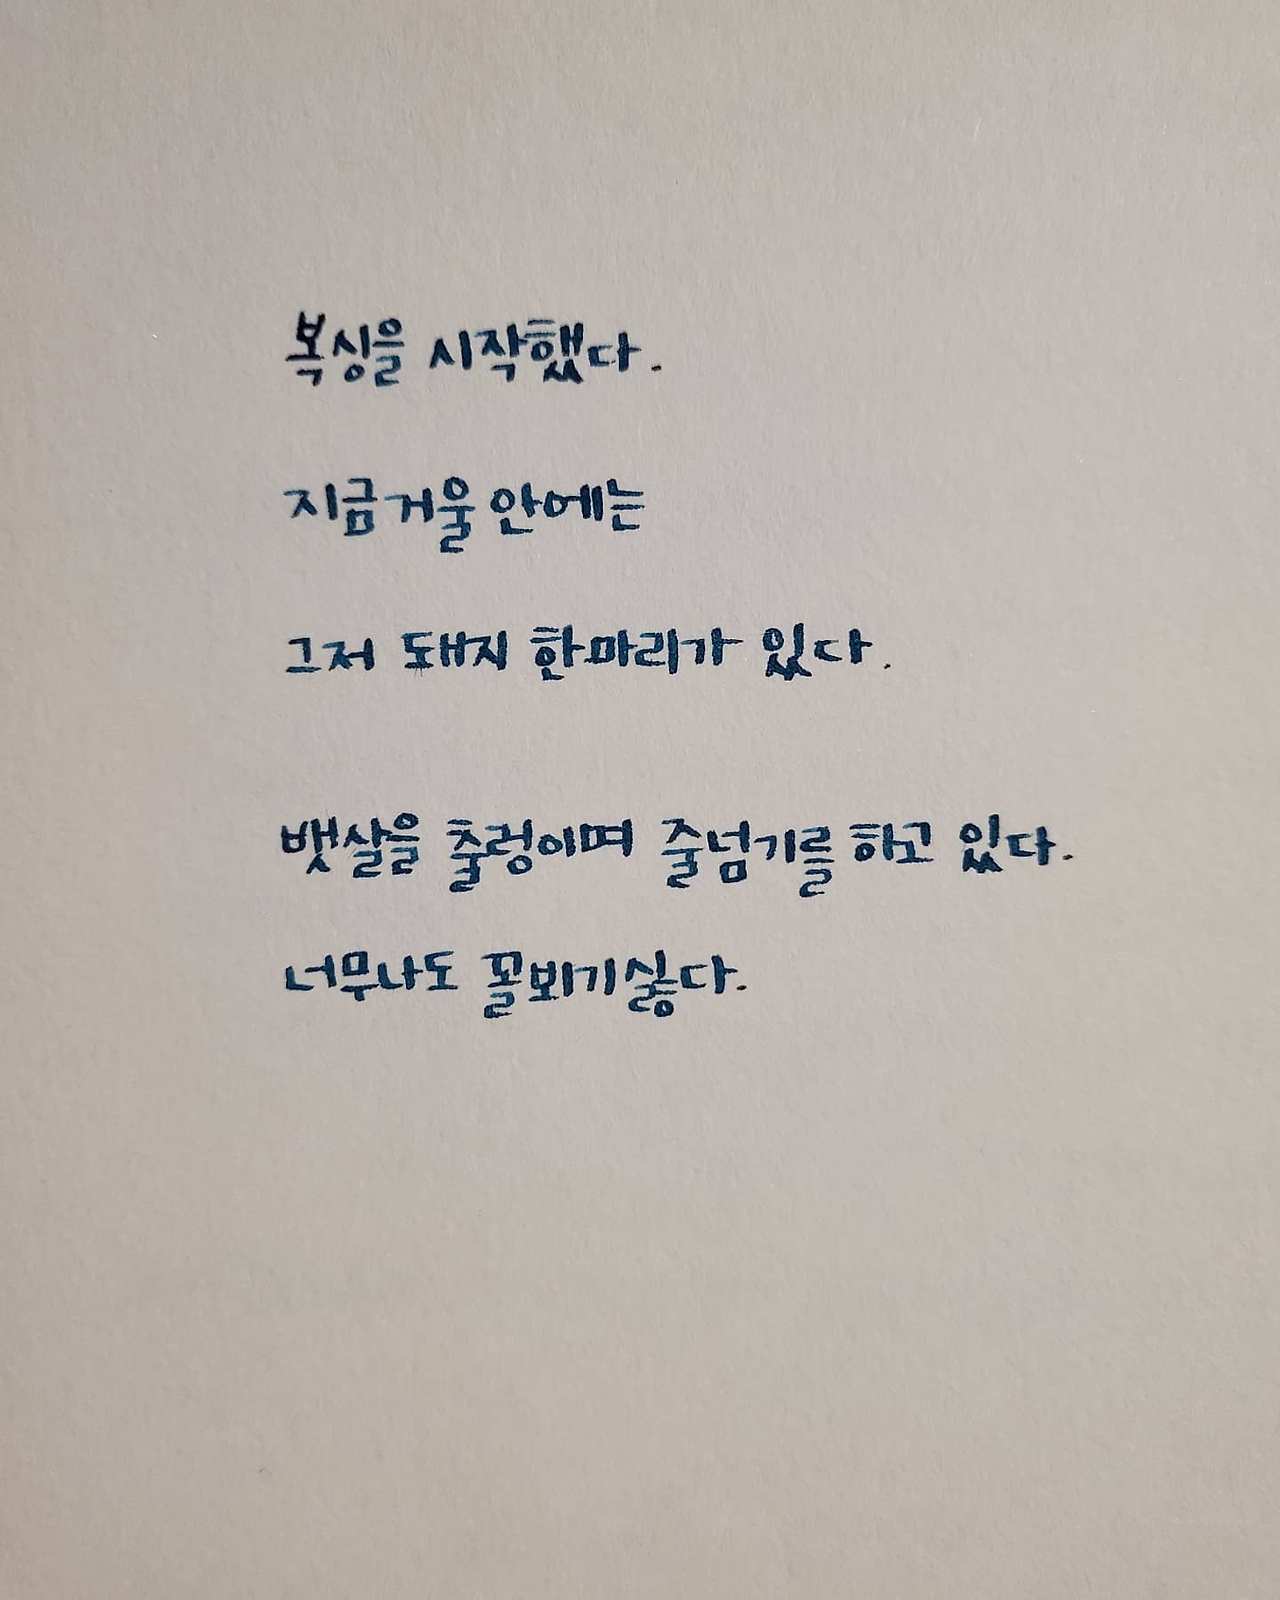 복싱을 시작했다.
지금 거울 안에는
그저 돼지 한마리가 있다.
뱃살을 출렁이며 줄넘기를 하고 있다.
너무나도 꼴보기싫다.